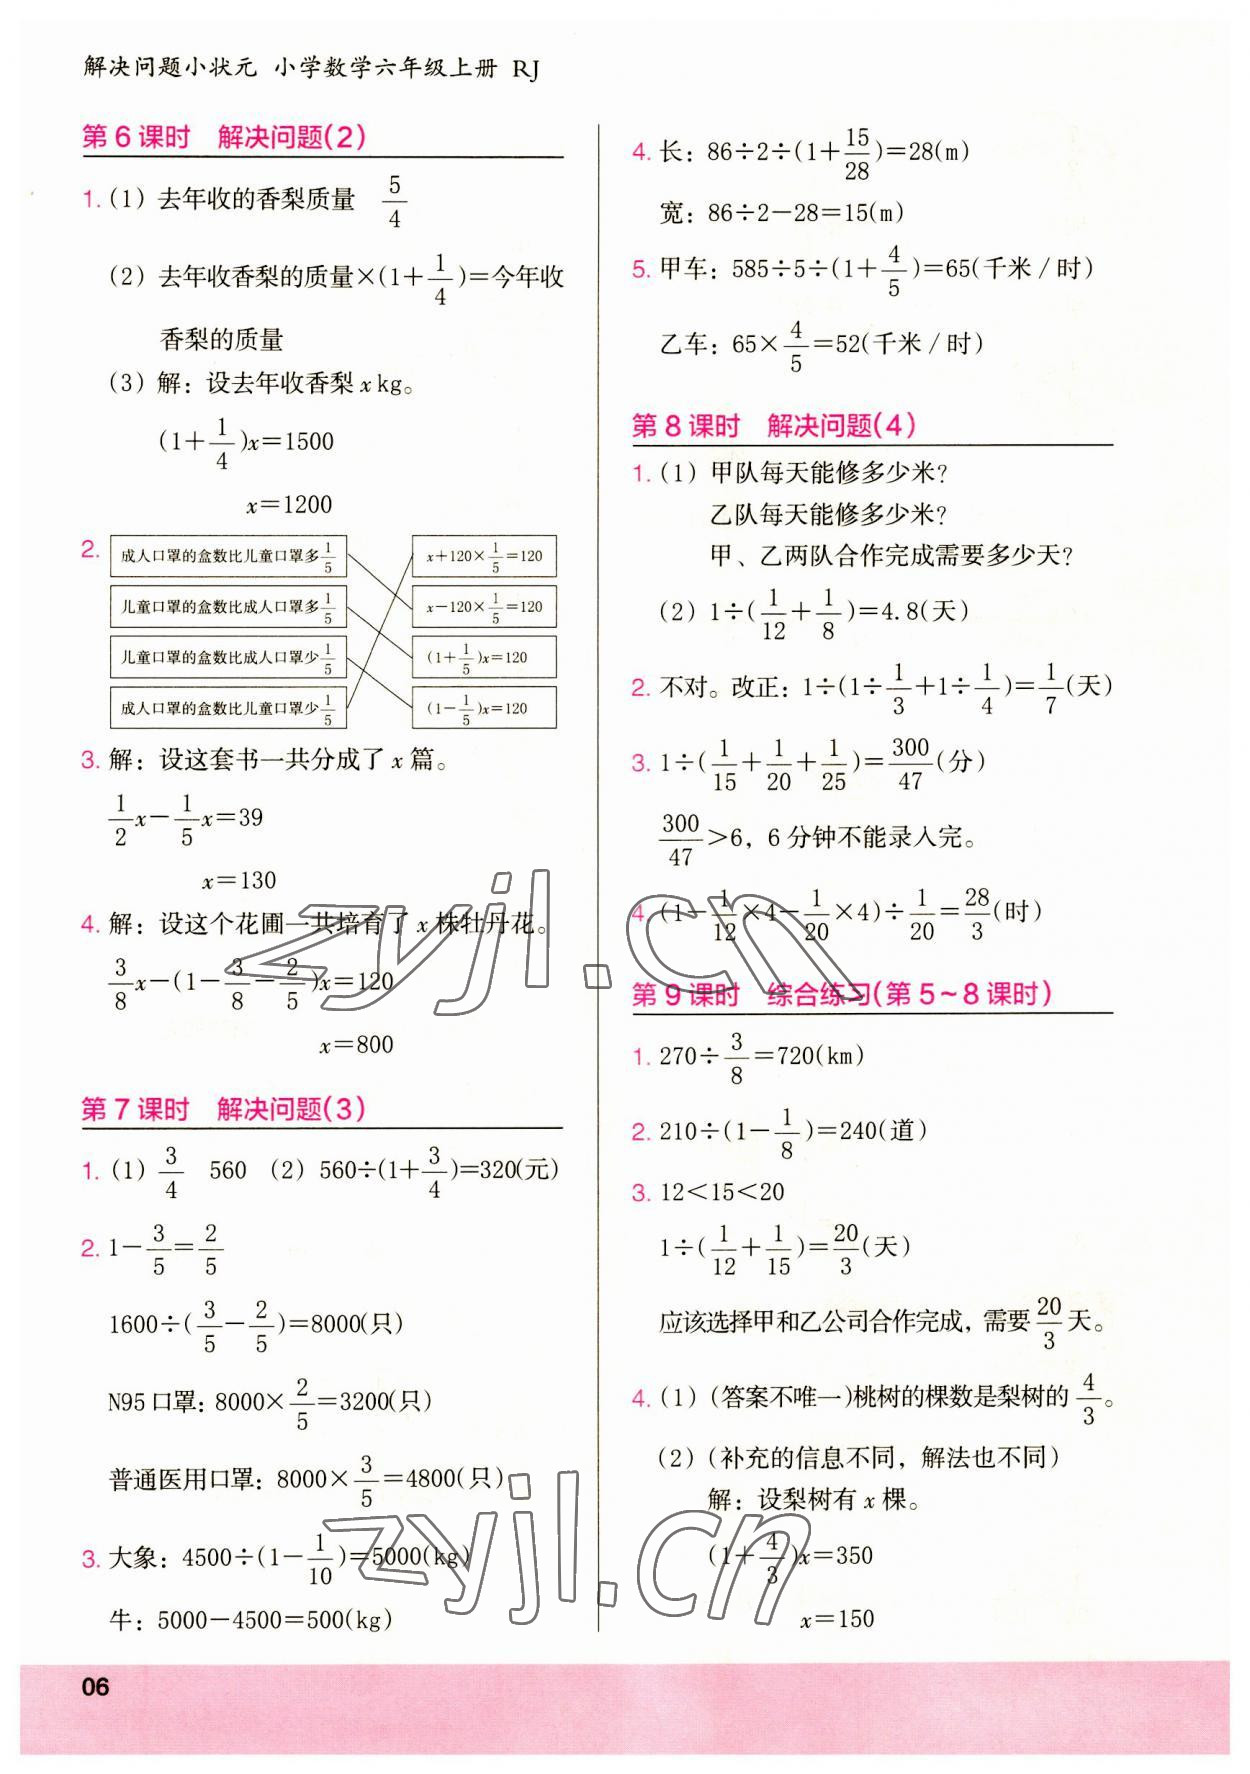 解决问题小状元 小学数学六年级上册 RJ
第6课时 解决问题(2)
1. (1) 去年收的香梨质量 5/4
(2) 去年收香梨的质量×(1+1/4)=今年收
香梨的质量
(3) 解：设去年收香梨 x kg。
(1+1/4)x=1500
x=1200
2. 成人口罩的盒数比儿童口罩多1/5 x+120×1/5=120
儿童口罩的盒数比成人口罩多1/5 x-120×1/5=120
儿童口罩的盒数比成人口罩少1/5 (1+1/5)x=120
成人口罩的盒数比儿童口罩少1/5 (1-1/5)x=120
3. 解：设这套书一共分成了 x 篇。
1/2x-1/5x=39
x=130
4. 解：设这个花圃一共培育了 x 株牡丹花。
3/8x-(1-3/8-2/5)x=120
x=800
第7课时 解决问题(3)
1. (1) 3/4 560 (2) 560÷(1+3/4)=320(元)
2. 1-3/5=2/5
1600÷(3/5-2/5)=8000(只)
N95口罩：8000×2/5=3200(只)
普通医用口罩：8000×3/5=4800(只)
3. 大象：4500÷(1-1/10)=5000(kg)
牛：5000-4500=500(kg)
4. 长：86÷2÷(1+15/28)=28(m)
宽：86÷2-28=15(m)
5. 甲车：585÷5÷(1+4/5)=65(千米/时)
乙车：65×4/5=52(千米/时)
第8课时 解决问题(4)
1. (1) 甲队每天能修多少米?
乙队每天能修多少米?
甲、乙两队合作完成需要多少天?
(2) 1÷(1/12+1/8)=4.8(天)
2. 不对。改正：1÷(1÷1/3+1÷1/4)=1/7(天)
3. 1÷(1/15+1/20+1/25)=300/47(分)
300/47>6，6分钟不能录入完。
4. (1-1/12×4-1/20×4)÷1/20=28/3(时)
第9课时 综合练习(第5~8课时)
1. 270÷3/8=720(km)
2. 210÷(1-1/8)=240(道)
3. 12<15<20
1÷(1/12+1/15)=20/3(天)
应该选择甲和乙公司合作完成，需要20/3天。
4. (1) (答案不唯一)桃树的棵数是梨树的4/3。
(2) (补充的信息不同，解法也不同)
解：设梨树有 x 棵。
(1+4/3)x=350
x=150
06
zyjl.cn
zyjl.cn